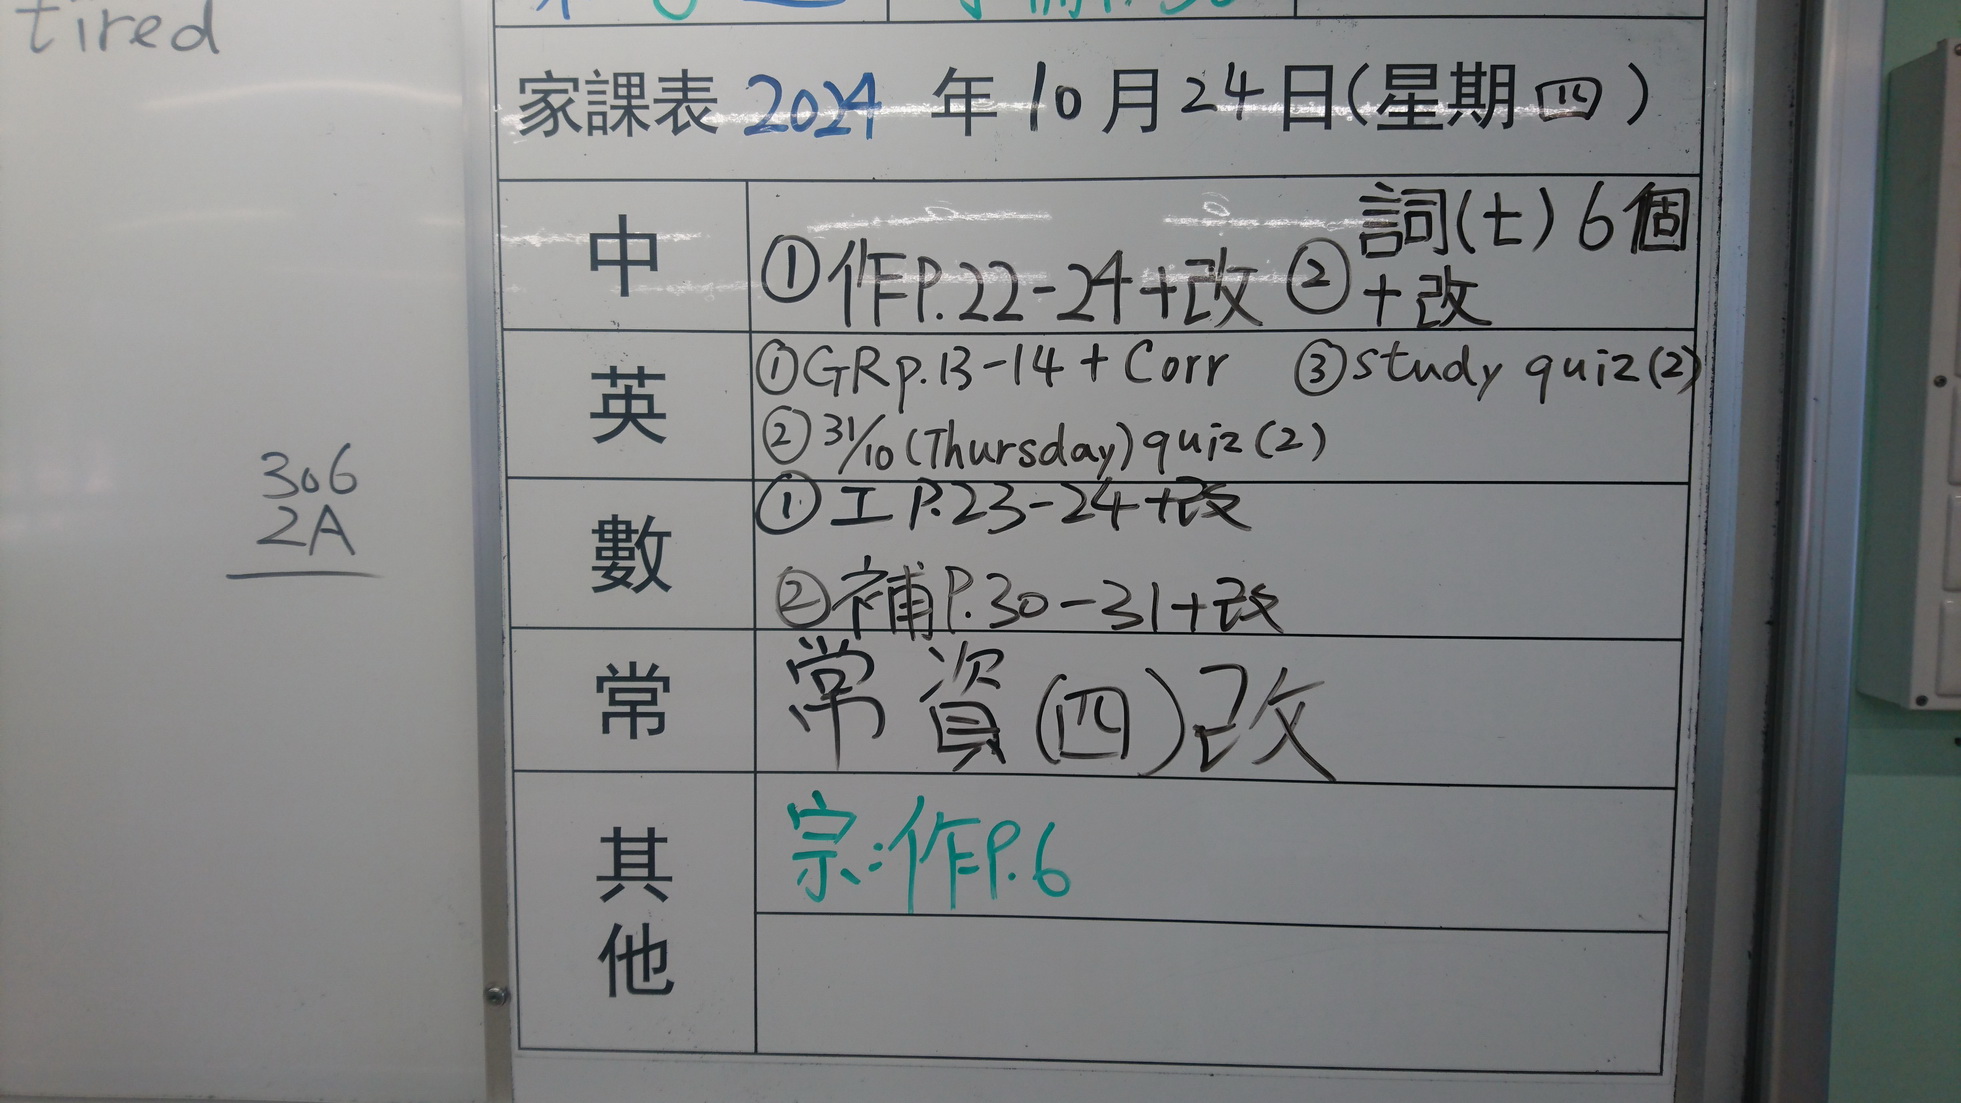 tired
家課表 2024 年 10 月 24 日(星期四)
中
①作P.22-24+改 ②詞(七)6個
+改
英
①GR p.13-14 + Corr ③study quiz(2)
②31/10(Thursday)quiz(2)
數
①工P.23-24+改
②補P.30-31+改
常
常資(四)改
其他
宗:作P.6
306
2A